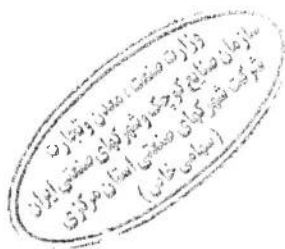 وزارت صنعت ، معدن و تجارت
سازمان صنایع کوچک و شهرکهای صنعتی ایران
شرکت شهرکهای صنعتی استان مرکزی
(سهامی خاص)